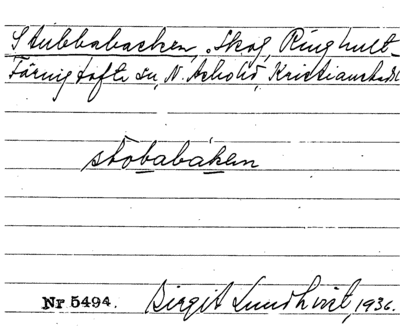 Stubbabacken, Skog, Ringhult
Färingtofta sn, N. Åsbo hd, Kristianstads l
stobabaken
Nr 5494. Birgit Lundkvist, 1936.